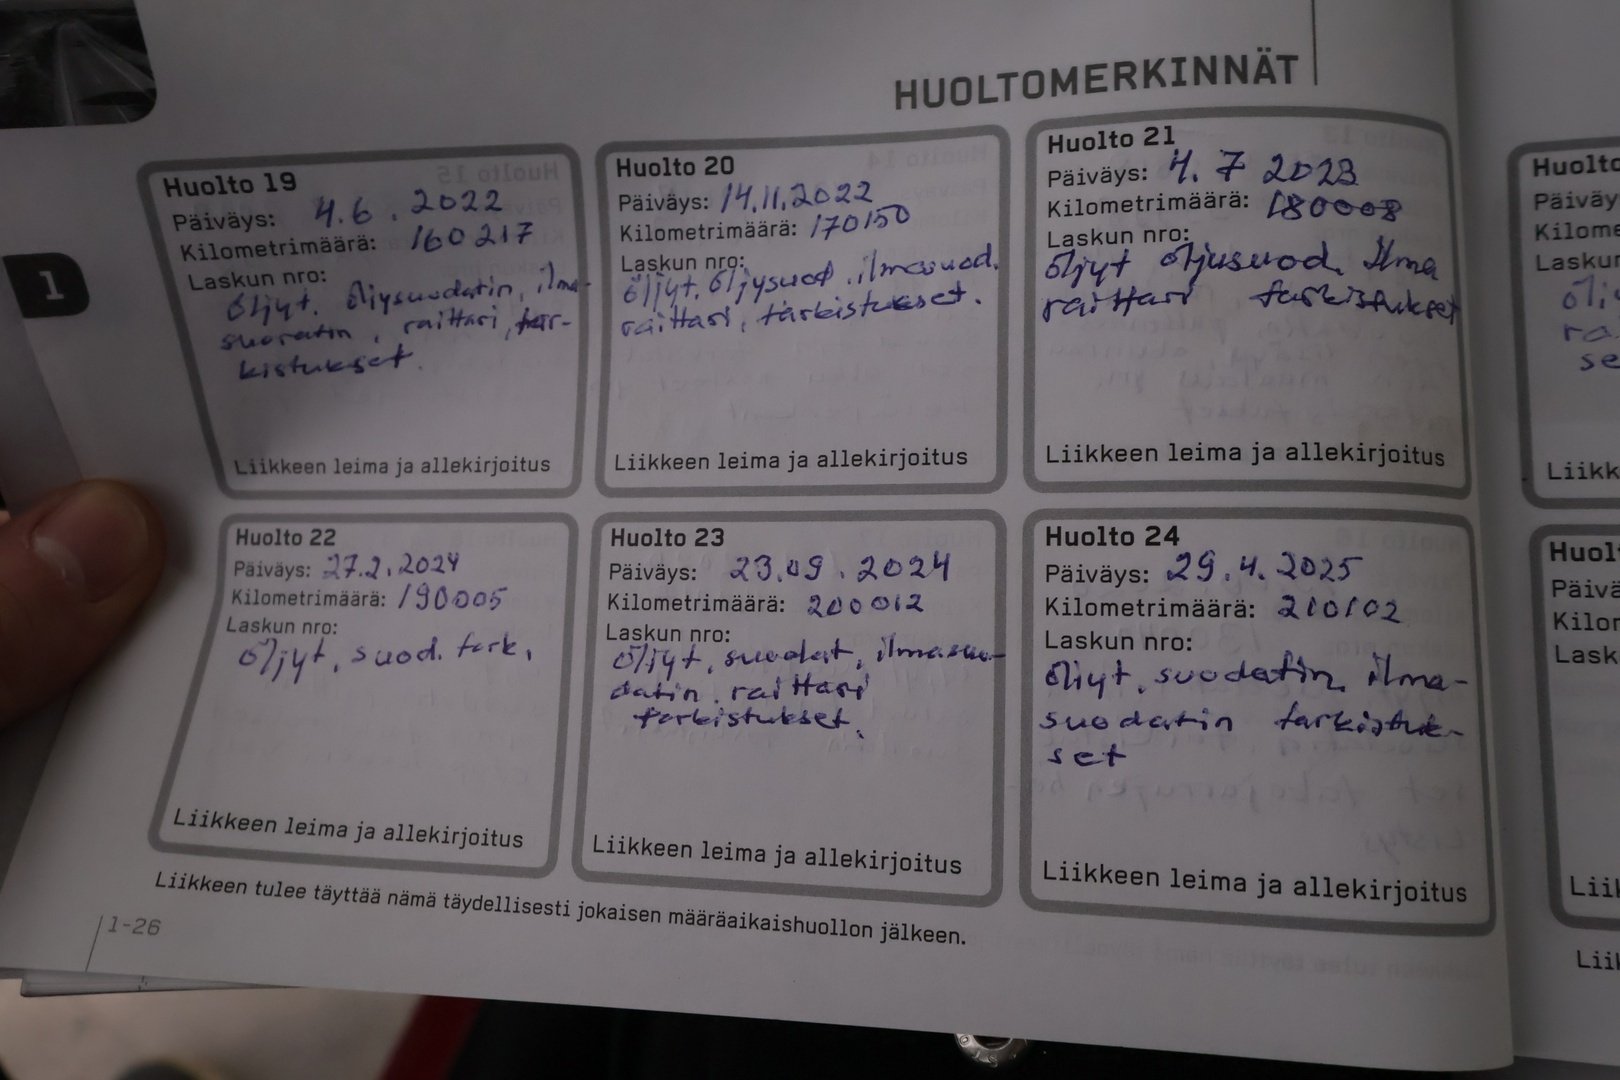 HUOLTOMERKINNÄT
1
Huolto 19
Päiväys: 4.6.2022
Kilometrimäärä: 160217
Laskun nro:
öljyt. öljysuodatin, ilma-
suoratin, raittari, tar-
kistukset.
Liikkeen leima ja allekirjoitus
Huolto 20
Päiväys: 14.11.2022
Kilometrimäärä: 170150
Laskun nro:
öljyt, öljysuod. ilmasuod.
raittari, tarkistukset.
Liikkeen leima ja allekirjoitus
Huolto 21
Päiväys: 4.7 2023
Kilometrimäärä: 180008
Laskun nro:
öljyt öljusuod. Ilma
raittari tarkistukset
Liikkeen leima ja allekirjoitus
Huolto
Päiväy
Kilome
Laskun
ra
se
Liikk
Huolto 22
Päiväys: 27.2.2024
Kilometrimäärä: 190005
Laskun nro:
öljyt, suod. tark.
Liikkeen leima ja allekirjoitus
Huolto 23
Päiväys: 23.09.2024
Kilometrimäärä: 200012
Laskun nro:
öljyt, suodat, ilmasuo-
datin. raittari
tarkistukset.
Liikkeen leima ja allekirjoitus
Huolto 24
Päiväys: 29.4.2025
Kilometrimäärä: 210102
Laskun nro:
öljyt, suodatin, ilma-
suodatin tarkistuk-
set
Liikkeen leima ja allekirjoitus
Huolt
Päivä
Kilom
Lask
Liik
Liikkeen tulee täyttää nämä täydellisesti jokaisen määräaikaishuollon jälkeen.
Liik
1-26